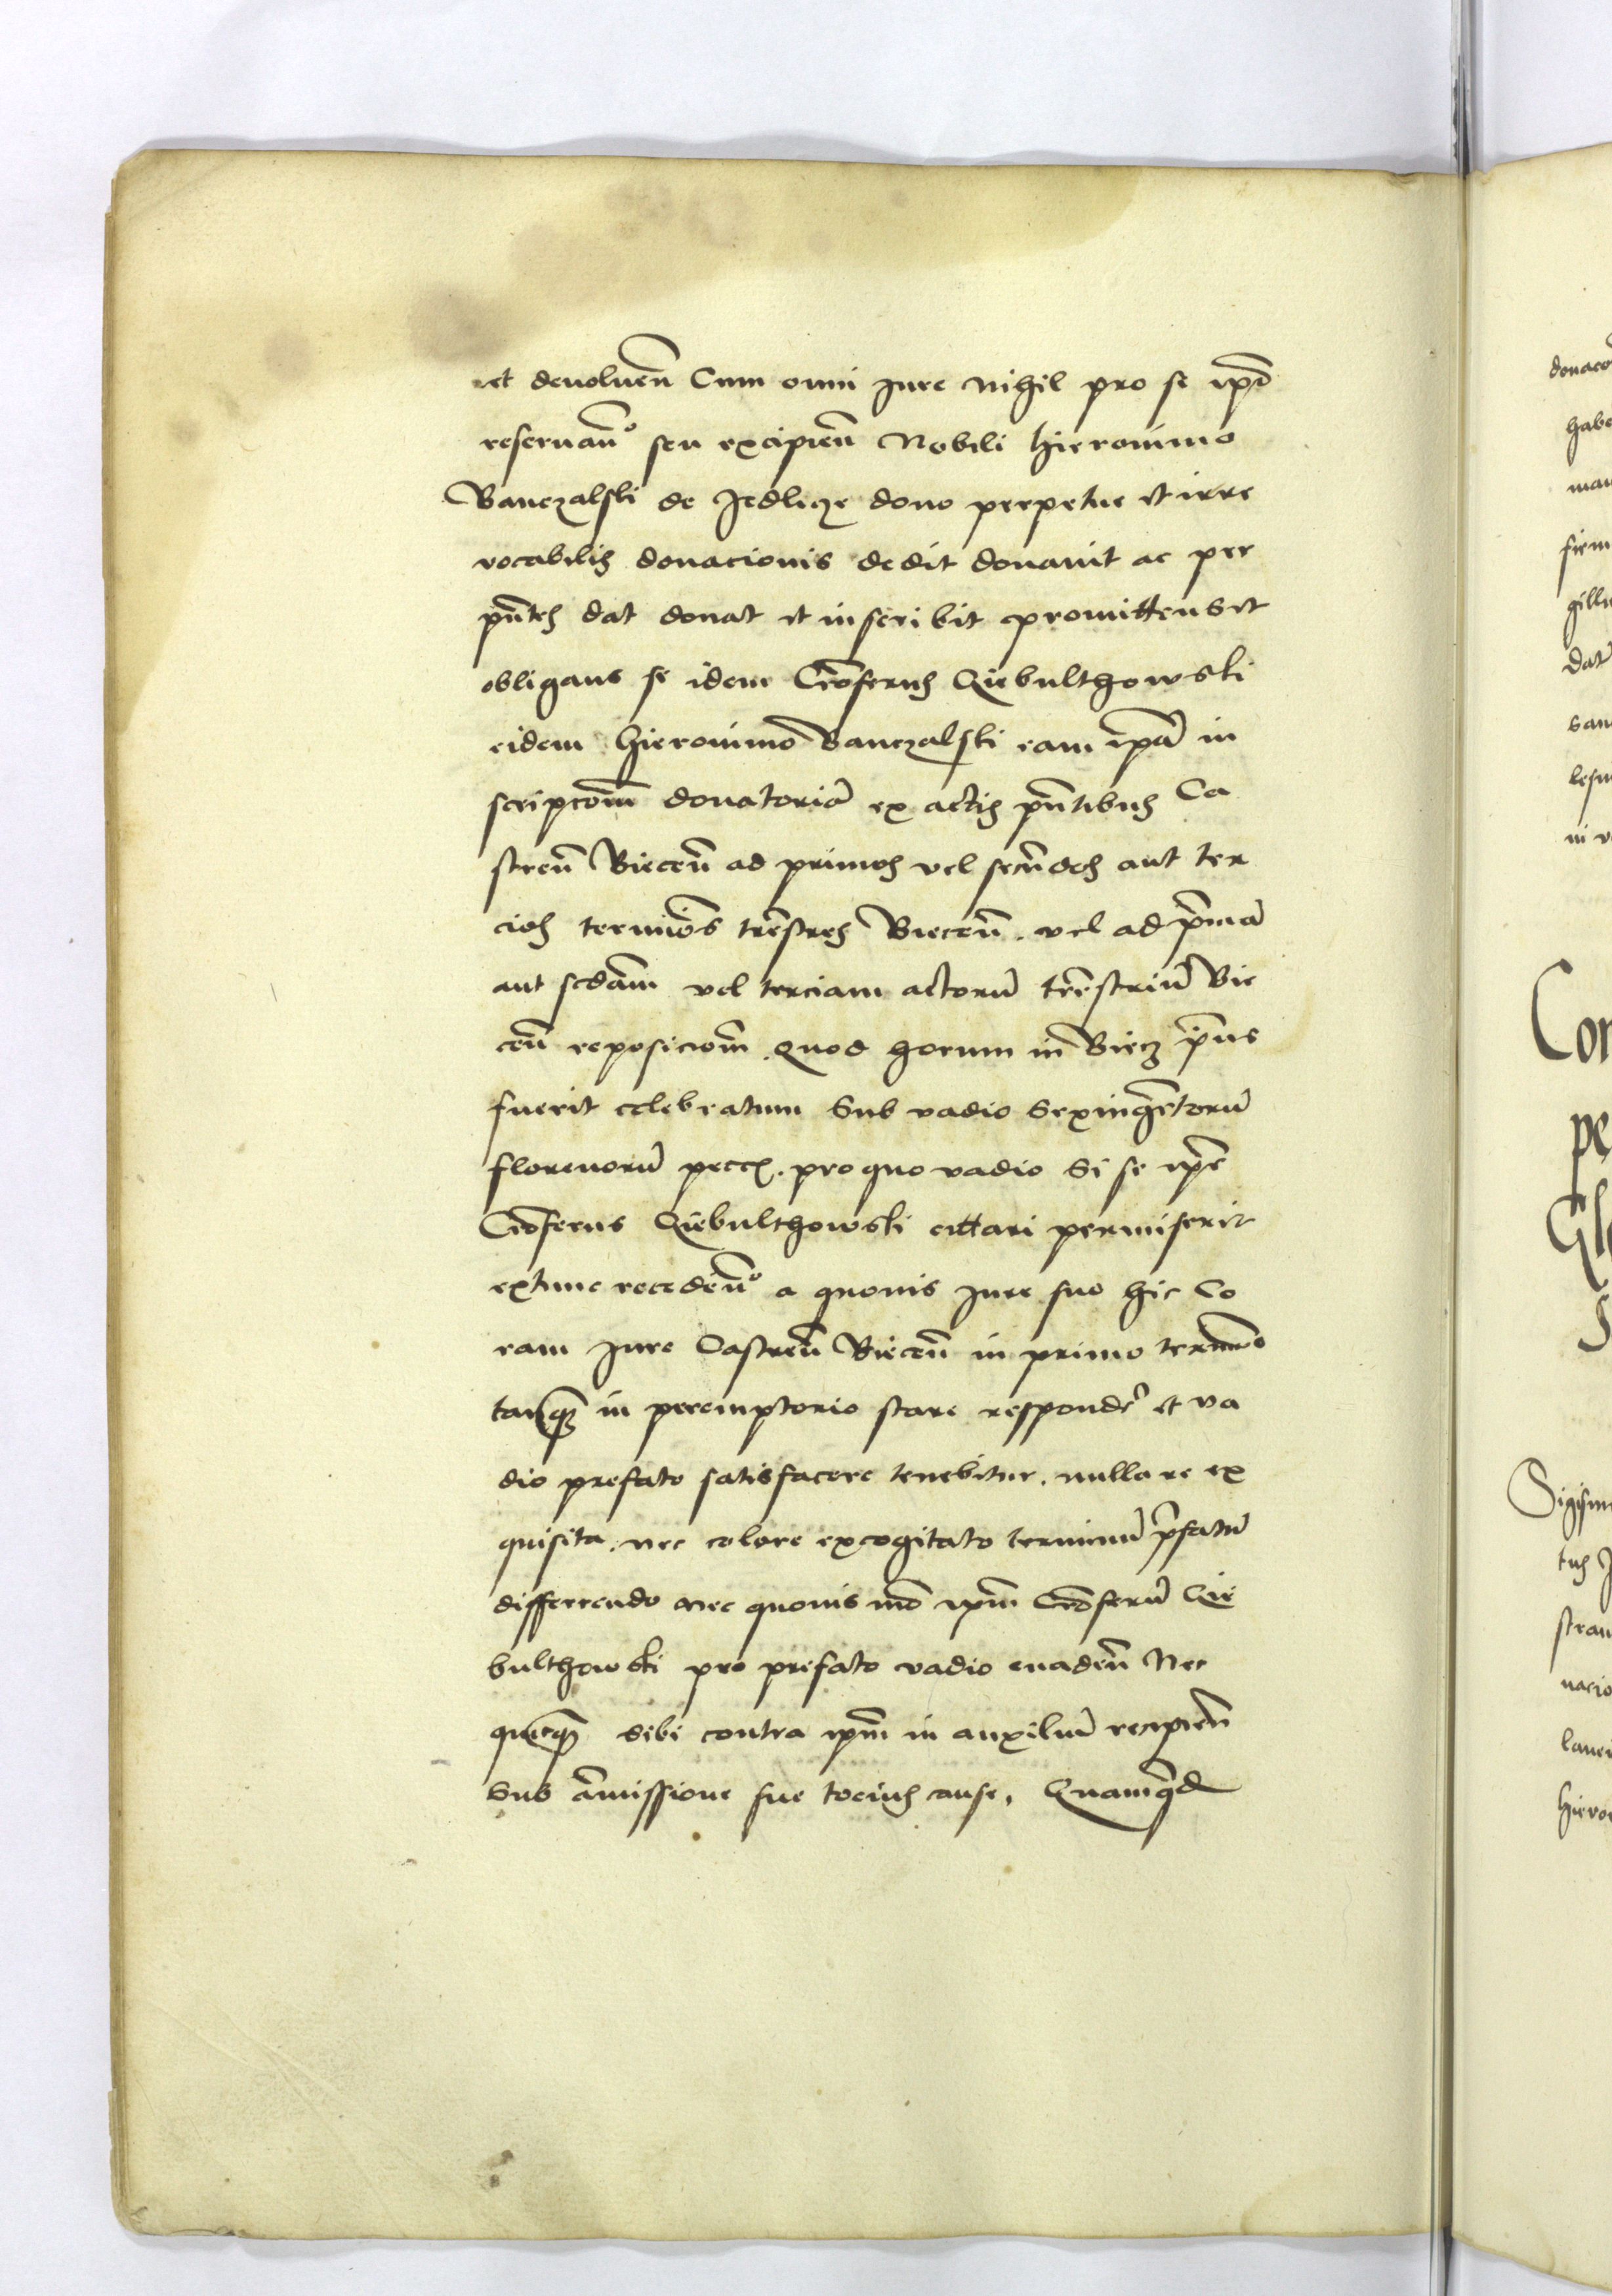 et devoluen̄ Cum omni Jure nihil pro se ip̄o
reseruan̄º seu excipien̄ Nobili Hieronimo
Banczalski de Jedlicze dono perpetue et irre
vocabilis donacionis dedit donauit ac per
pn̄tes dat donat et inscribit promittens et
obligans se idem Cr̄oferus Qiebulthowski
eidem Hieronimo Banczalski eam ip̄ā in
scripcōm̄ donatoriā ex actis pn̄tibus Ca
stren̄ Biecen̄ ad primos vel secūdos aut ter
cios termīos tr̄estres Biecen̄. vel ad p̄rimā
aut scd̄am vel terciam actorū tr̄estriū Bie
cen̄ reposiciom̄. Quod horum in Biecz p̄rius
fuerit celebratum Sub vadio Sexingētorū
florenorū pecc. pro quo vadio Si se ip̄e
Cr̄oferus Qiebulthowski cittari permiserit
extunc receden̄º a quouis Jure suo hic Co
ram Jure Castren̄ Biecen̄ in primo termino
tanq̄ in peremptorio stare responder̄ et va
dio prefato satisfacere tenebitur. nulla re ex
quisita. nec colore excogitato terminū p̄fatū
differrendo nec quouis mō ip̄m Cr̄oferū Qie
bulthowski pro prefato vadio euaden̄ Nec
quicq̄ sibi contra ip̄m in auxiliū recipien̄
Sub āmissione sue tocius cause, Quamq̄d
donaco
habe
man
firm
gillu
dat
san
lesu
in v
Con
pe
Gl
S
Sigism
tus J
stran
nacio
lanei
Hiero